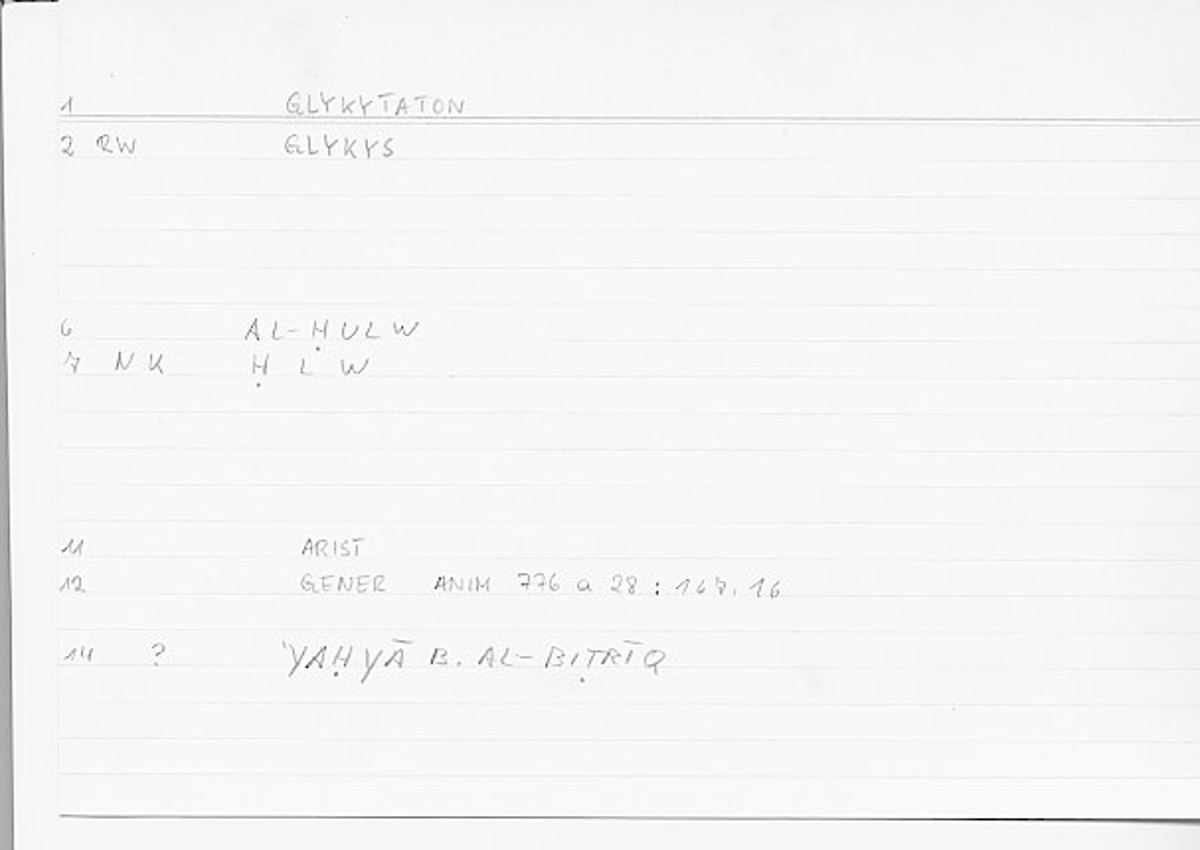 1 GLYKYTATON
2 RW GLYKYS
6 AL-ḤULW
7 NK Ḥ L W
11 ARIST
12 GENER ANIM 776 a 28 : 167, 16
14 ? YAḤYĀ B. AL-BIṬRĪQ